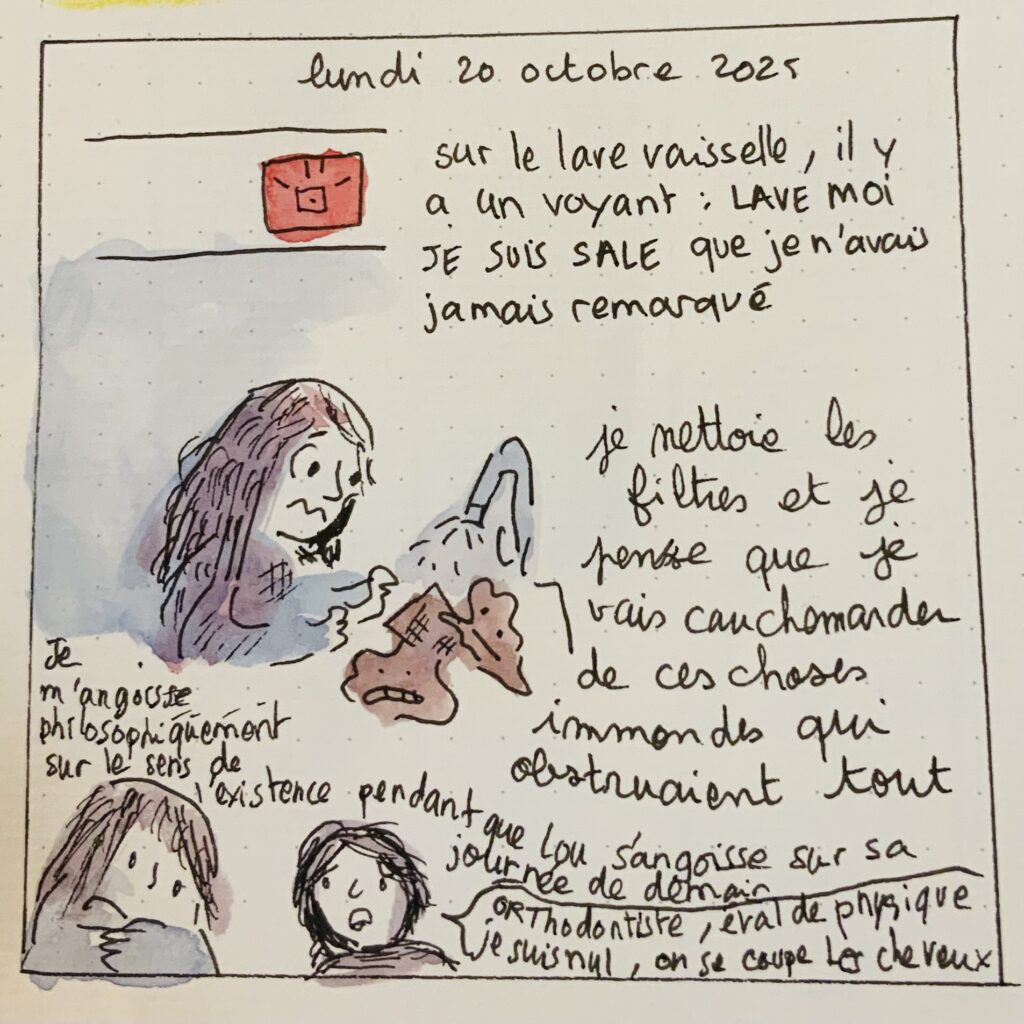 lundi 20 octobre 2025
sur le lave vaisselle, il y
a un voyant : LAVE MOI
JE SUIS SALE que je n'avais
jamais remarqué
je nettoie les
filtres et je
pense que je
vais cauchemarder
de ces choses
immondes qui
obstruaient tout
Je
m'angoisse
philosophiquement
sur le sens de
l'existence pendant
que Lou s'angoisse sur sa
journée de demain
ORTHodontiste, éval de physique
je suis nul, on se coupe les cheveux